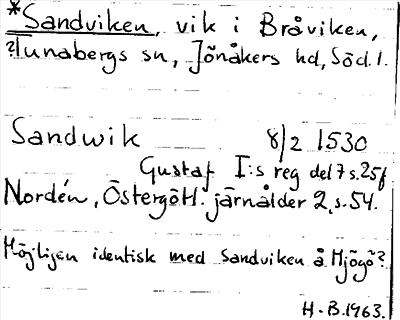 *Sandviken, vik i Bråviken,
?Tunabergs sn, Jönåkers hd, Söd.l.
Sandwik 8/2 1530
Gustaf I:s reg del 7 s.25f
Nordén, Östergötl. järnålder 2, s.54.
Möjligen identisk med Sandviken å Mjögö?
H.B.1963.